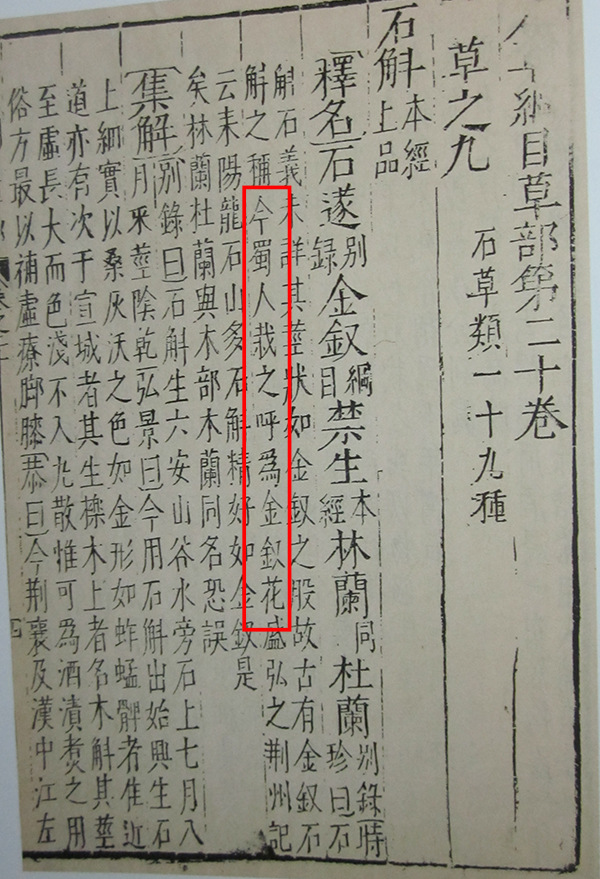 本草綱目草部第二十卷
草之九 石草類一十九種
石斛本經上品
釋名石遂别錄金釵綱目禁生本經林蘭同杜蘭别錄時珍曰石
斛石義未詳其莖狀如金釵之股故古有金釵石
斛之稱今蜀人栽之呼為金釵花盛弘之荆州記
云耒陽龍石山多石斛精好如金釵是
矣林蘭杜蘭與木部木蘭同名恐誤
集解别錄曰石斛生六安山谷水旁石上七月八
月采莖陰乾弘景曰今用石斛出始興生石
上細實以桑灰沃之色如金形如蚱蜢髀者佳近
道亦有次于宣城者其生櫟木上者名木斛其莖
至虛長大而色淺不入丸散惟可為酒漬煑之用
俗方最以補虛療脚膝恭曰今荆襄及漢中江左